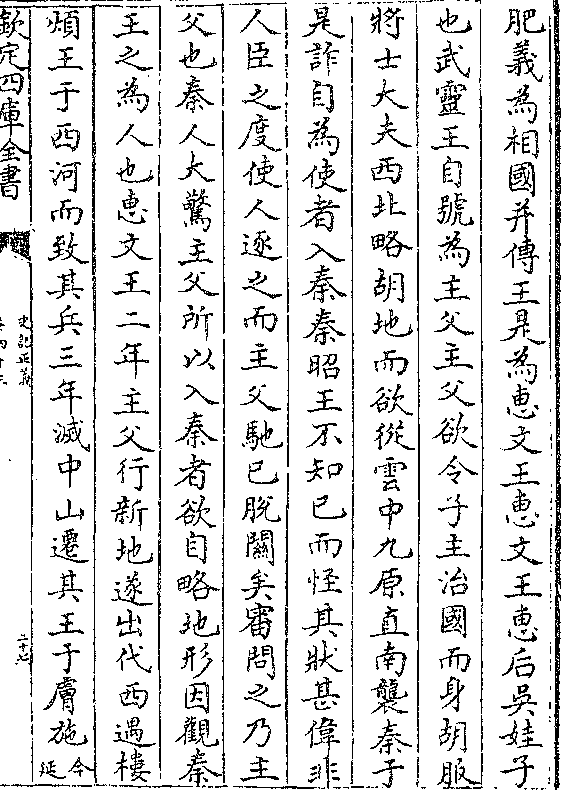 肥義為相國并傳王是為惠文王惠文王惠后吳娃子
也武靈王自號為主父主父欲令子主治國而身胡服
將士大夫西北略胡地而欲從雲中九原直南襲秦于
是詐自為使者入秦秦昭王不知已而怪其狀甚偉非
人臣之度使人逐之而主父馳已脫關矣審問之乃主
父也秦人大驚主父所以入秦者欲自略地形因觀秦
王之為人也惠文王二年主父行新地遂出代西遇樓
煩王于西河而致其兵三年滅中山遷其王于膚施今延
欽定四庫全書
史記正義
二十七